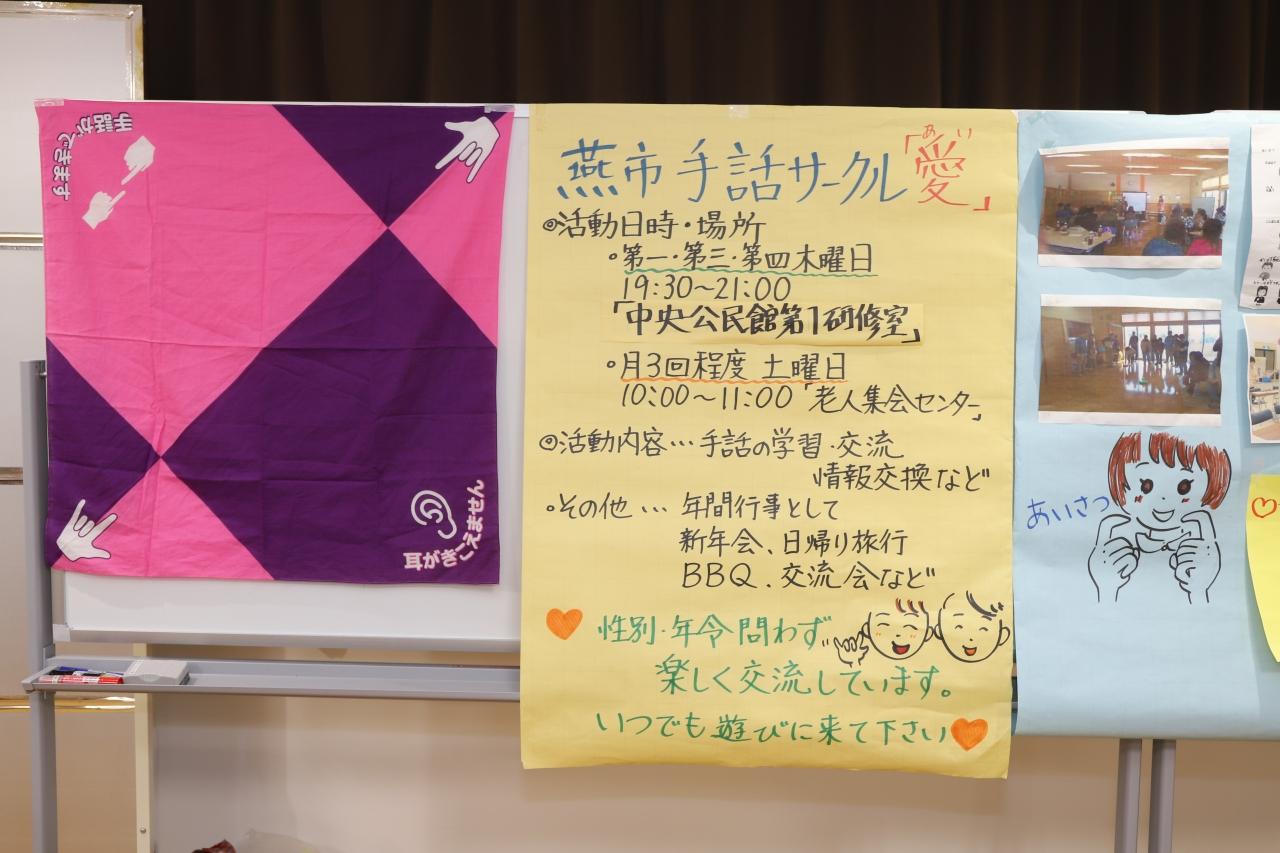 手話ができます
耳がきこえません
燕市手話サークル「愛」
あい
◎活動日時・場所
・第一・第三・第四木曜日
19:30〜21:00
「中央公民館第1研修室」
・月3回程度 土曜日
10:00〜11:00「老人集会センター」
◎活動内容…手話の学習・交流
情報交換など
・その他…年間行事として
新年会、日帰り旅行
BBQ、交流会など
性別・年令問わず
楽しく交流しています。
いつでも遊びに来て下さい
あいさつ